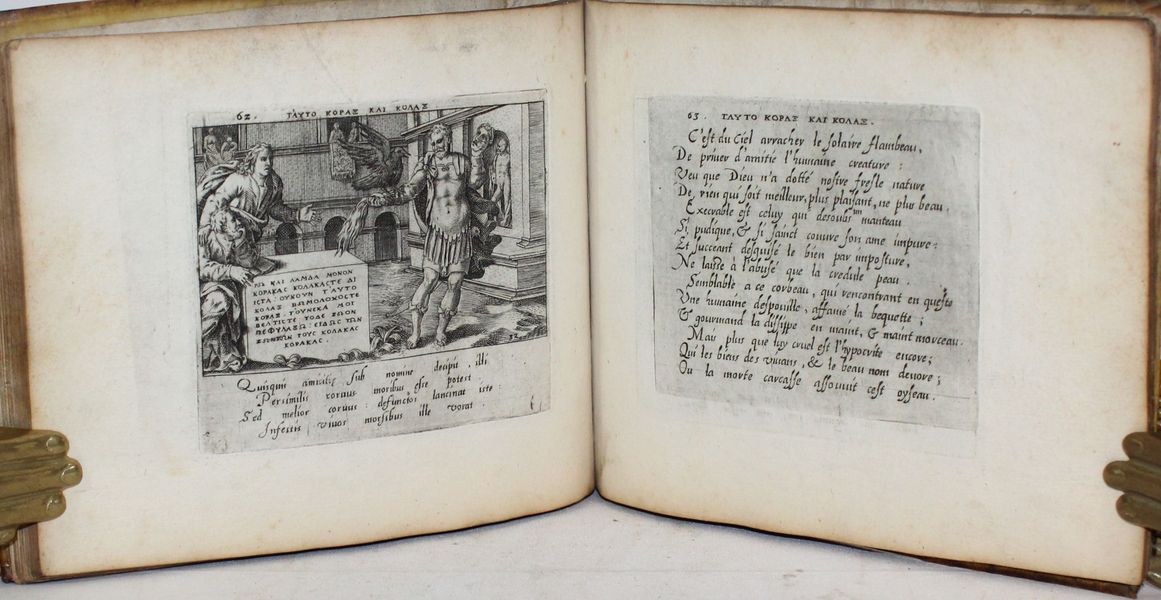 62. ΤΑΥΤΟ ΚΟΡΑΞ ΚΑΙ ΚΟΛΑΞ
ΡΩ ΚΑΙ ΛΑΜΔΑ ΜΟΝΟΝ
ΚΟΡΑΚΑΣ ΚΟΛΑΚΑΣΤΕ ΔΙ
ΙΣΤΑ : ΟΥΚΟΥΝ ΤΑΥΤΟ
ΚΟΛΑΞ ΒΩΜΟΛΟΧΟΣΤΕ
ΚΟΡΑΞ. ΤΟΥΝΕΚΑ ΜΟΙ
ΒΕΛΤΙΣΤΕ ΤΟΔΕ ΖΩΟΝ
ΠΕΦΥΛΑΞΩ : ΕΙΔΩΣ ΤΩΝ
ΖΩΝΤΩΝ ΤΟΥΣ ΚΟΛΑΚΑΣ
ΚΟΡΑΚΑΣ .
Quisquis amicitiæ sub nomine decipit, illi
Persimilis coruus moribus esse potest.
Sed melior coruus: defunctos lancinat iste:
Infestis viuos morsibus ille vorat.
63. ΤΑΥΤΟ ΚΟΡΑΞ ΚΑΙ ΚΟΛΑΞ.
C'est du Ciel arracher le solaire flambeau,
De priuer d'amitié l'humaine creature :
Veu que Dieu n'a dotté nostre fresle nature
De rien qui soit meilleur, plus plaisant, ne plus beau.
Execrable est celuy qui desoubs un manteau
Si pudique, & si sainct couure son ame impure:
Et succeant desguisé le bien par imposture,
Ne laisse à l'abusé que la credule peau.
Semblable a ce corbeau, qui rencontrant en queste
Vne humaine despouille, affamé la bequette ;
& gourmand la dissippe en maint, & maint morceau.
Mais plus que luy cruel est l'hypocrite encore;
Qui les biens des viuans, & le beau nom deuore ;
Ou la morte carcasse assouuit cest oyseau.